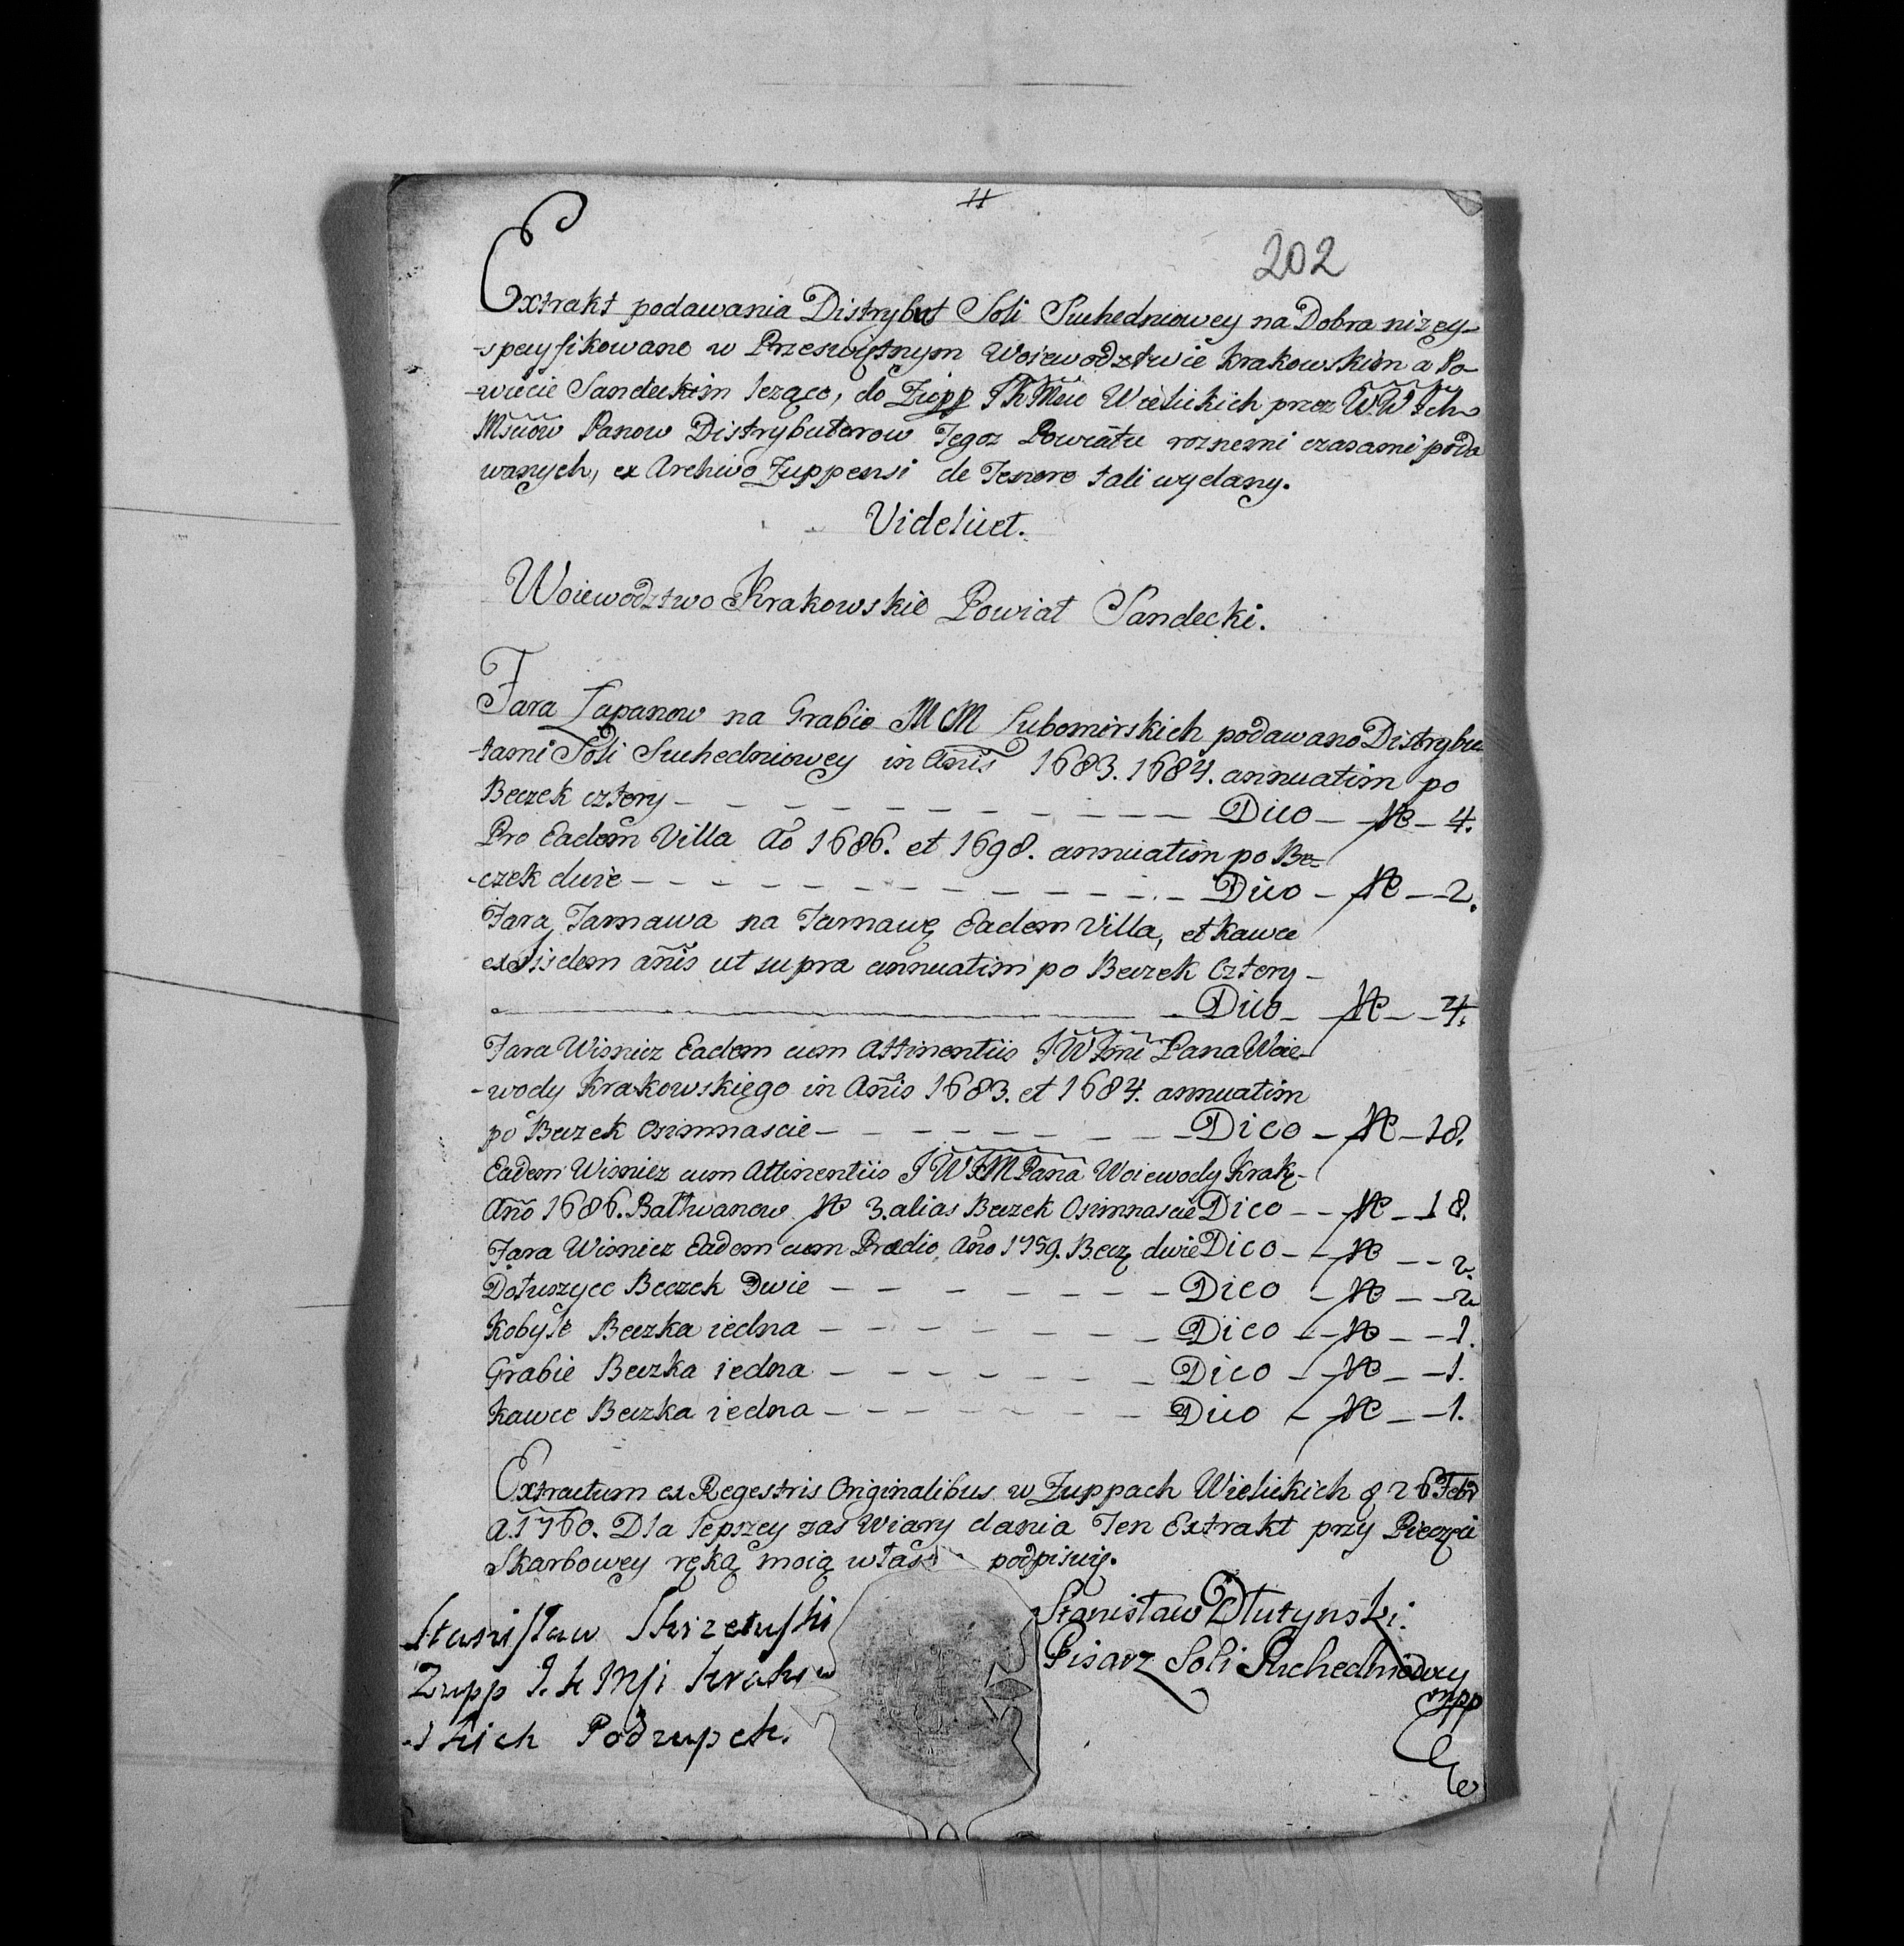 #
202
Extrakt podawania Distrybut Soli Suchedniowey na Dobra niżey-
-specyfikowane w Przeświętnym Woiewodztwie Krakowskim a Po-
-wiecie Sandeckim lezące, do Zupp Wielickich przez WW Ich
Mściow Panow Distrybutorow Tegoz Powiatu roznemi czasami poda
wanych, ex Archivo Zuppensi de Tenore tali wydany.
Videlicet.
Woiewodztwo Krakowskie Powiat Sandecki.
Fara Łapanow na Grabie MM Lubomirskich podawano Distrybu
-tami Soli Suchedniowey in Anis 1683. 1684. annuatim po
Beczek cztery – – – – – – – – – – – Dico – – № – 4.
Pro Eadem Villa Ao 1686. et 1698. annuatim po Be-
-czek dwie – – – – – – – – – – – – Dico – № – – 2.
Fara Tarnawa na Tarnawę Eadem Villa, et Kawce
ex Iisdem anis ut supra annuatim po Beczek Cztery –
– Dico – – № – – 4.
Fara Wisnicz Eadem cum Attinentiis JW Imci Pana Woie-
-wody Krakowskiego in Anis 1683. et 1684. annuatim
po Beczek osimnascie – – – – – – – – Dico – № – 18.
Eadem Wisnicz cum Attinentiis JWJM Pana Woiewody Krak.
Ano 1686. Bałwanow № 3. alias Beczek Osimnascie Dico – – № – 18.
Fara Wisnicz Eadem cum Prædio, Ano 1759. Becz. dwie Dico – – № – – 2.
Dołuszyce Beczek Dwie – – – – – – – Dico – № – – 2
Kobyle Beczka iedna – – – – – – – Dico – – № – – 1.
Grabie Beczka iedna – – – – – – – Dico – – № – – 1.
Kawce Beczka iedna – – – – – – – Dico – № – – 1.
Extractum ex Regestris Originalibus w Zuppach Wielickich d 26 Febr
A. 1760. Dla lepszey zas Wiary dania Ten Extrakt przy Pieczęci
Skarbowey ręką moią włas podpisuię.
Stanisław Skrzetuski
Zupp J. K Msci Krakow
-skich Podzupek.
Stanisław Dłutynski.
Pisarz Soli Suchedniowey
mpp